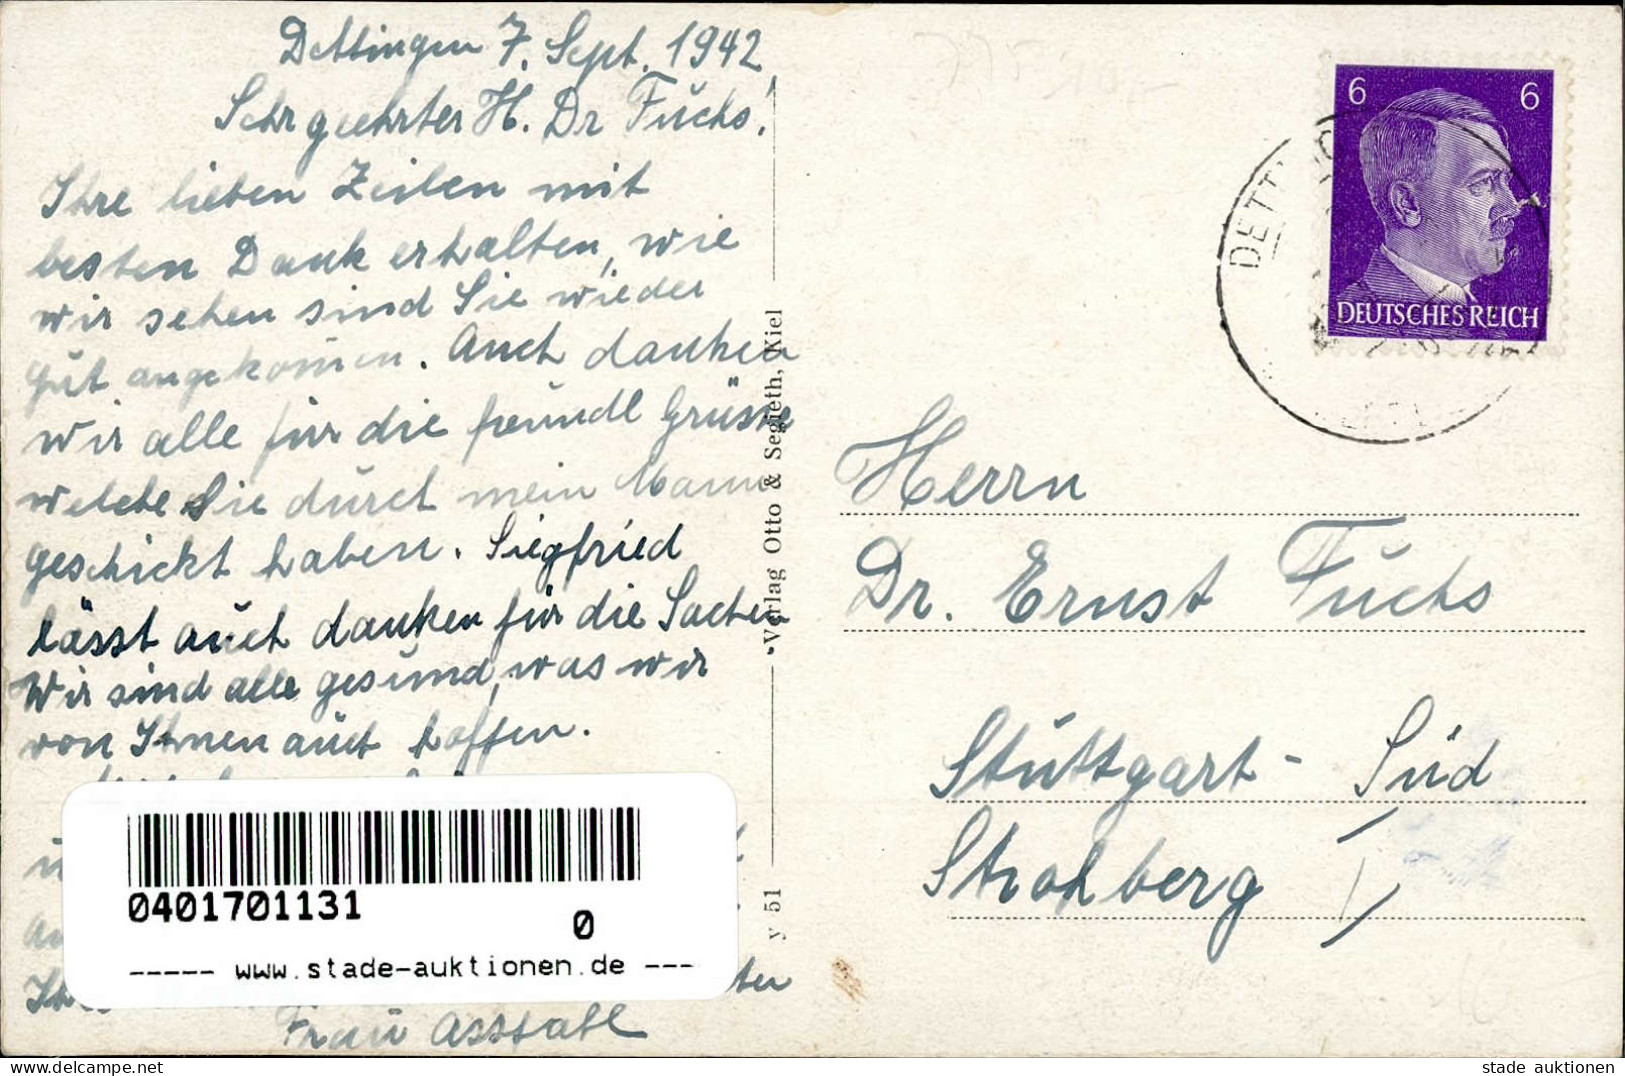 Dettingen 7. Sept. 1942
Sehr geehrter H. Dr Fuchs!
Ihre lieben Zeilen mit
besten Dank erhalten, wie
wir sehen sind Sie wieder
gut angekomen. Auch danken
wir alle für die freundl Grüsse
welche Sie durch mein Mann
geschickt haben. Siegfried
lässt auch danken für die Sachen
Wir sind alle gesund, was wir
von Ihnen auch hoffen.
Frau Assfahl
Verlag Otto & Segieth, Kiel
y 51
6 6
DEUTSCHES REICH
DETT
Herrn
Dr. Ernst Fuchs
Stuttgart - Süd
Strohberg
0401701131
0
----- www.stade-auktionen.de ---
stade auktionen